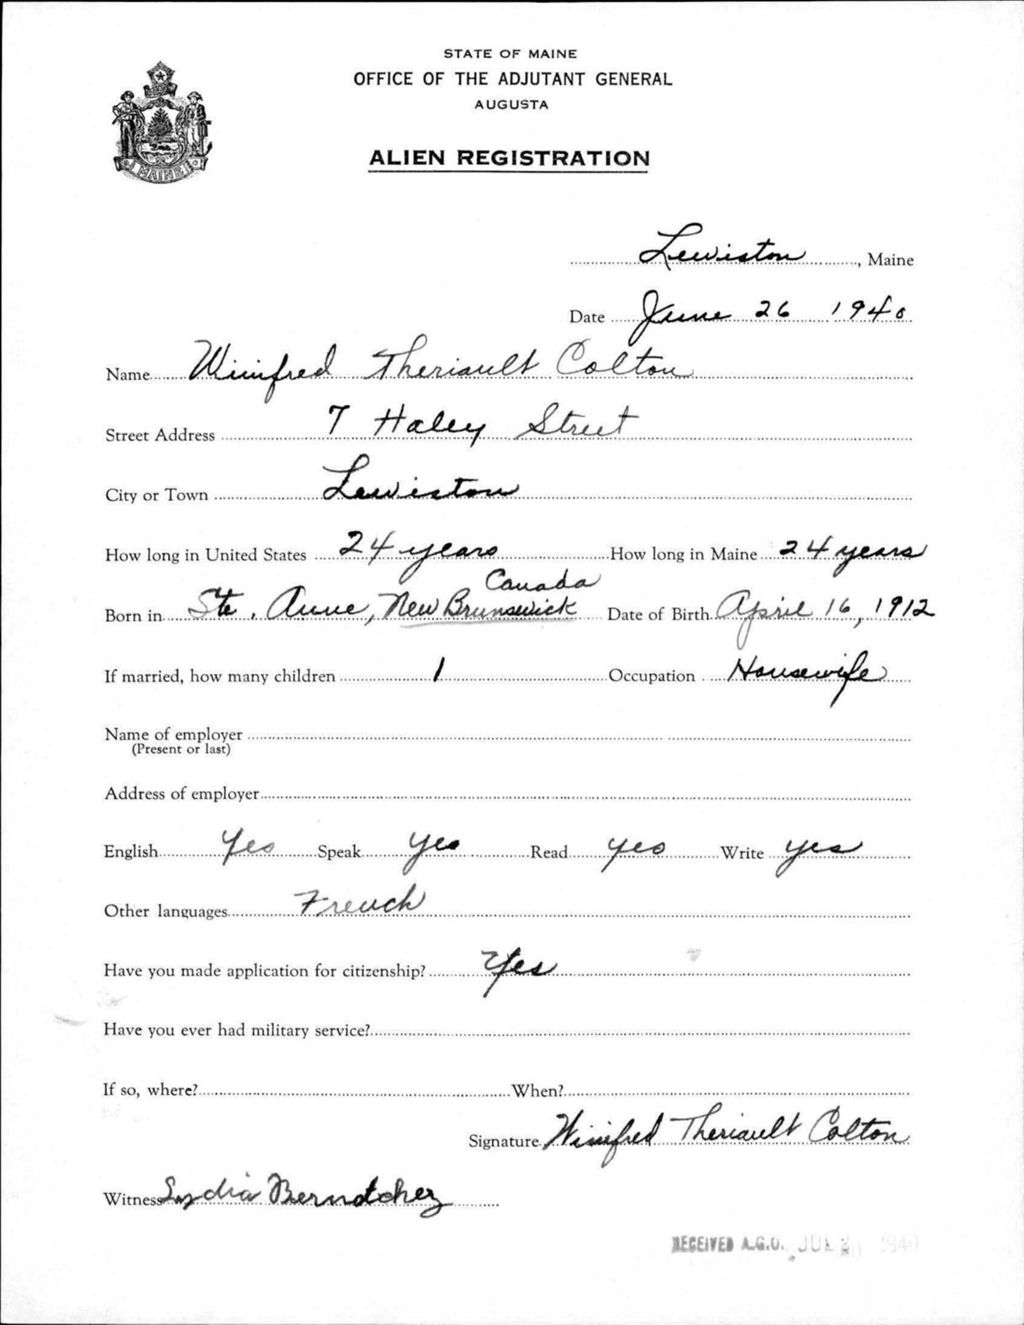 STATE OF MAINE
OFFICE OF THE ADJUTANT GENERAL
AUGUSTA
ALIEN REGISTRATION
MAINE
Lewiston, Maine
Date June 26 1940
Name Winifred Theriault Colton
Street Address 7 Haley Street
City or Town Lewiston
How long in United States 24 years How long in Maine 24 years
Canada
Born in Ste. Anne, New Brunswick Date of Birth April 16, 1912
If married, how many children 1 Occupation Housewife
Name of employer
(Present or last)
Address of employer
English Yes Speak Yes Read yes Write yes
Other languages French
Have you made application for citizenship? Yes
Have you ever had military service?
If so, where? When?
Signature Winifred Theriault Colton
Witness Lydia Bernatchez
RECEIVED A.G.O. JUL 1940